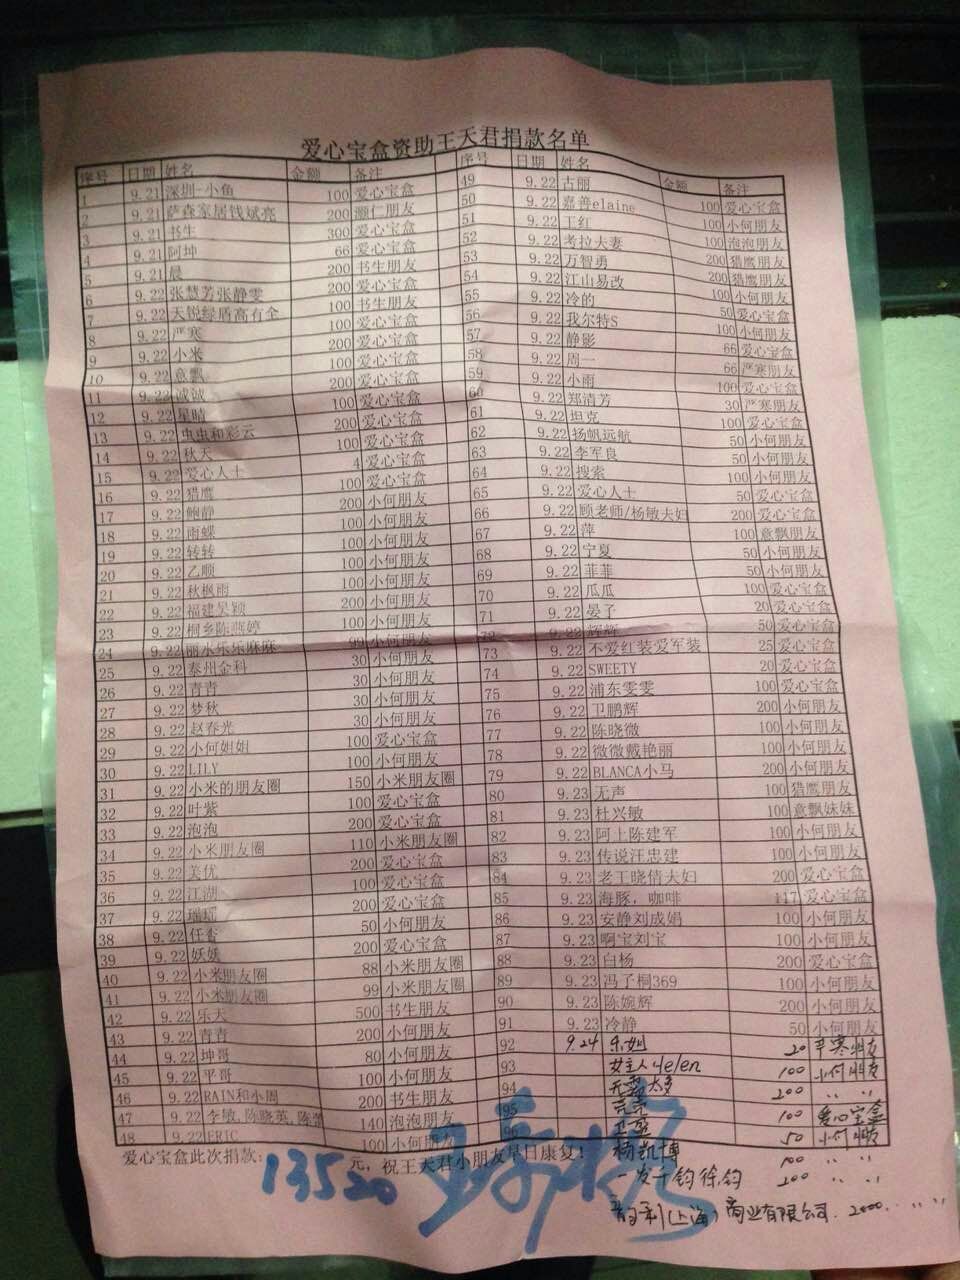 爱心宝盒资助王天君捐款名单
序号 日期 姓名 金额 备注
1 9.21 深圳-小鱼 100 爱心宝盒
2 9.21 萨森家居钱斌亮 200 灏仁朋友
3 9.21 书生 300 爱心宝盒
4 9.21 阿坤 66 爱心宝盒
5 9.21 晨 200 书生朋友
6 9.22 张慧芳张静雯 200 爱心宝盒
7 9.22 天锐绿盾高有全 100 书生朋友
8 9.22 严寒 200 爱心宝盒
9 9.22 小米 100 爱心宝盒
10 9.22 意飘 200 爱心宝盒
11 9.22 诚诚 100 爱心宝盒
12 9.22 星晴 200 爱心宝盒
13 9.22 虫虫和彩云 100 爱心宝盒
14 9.22 秋天 4 爱心宝盒
15 9.22 爱心人士 100 爱心宝盒
16 9.22 猎鹰 200 小何朋友
17 9.22 鲍静 100 小何朋友
18 9.22 雨蝶 100 小何朋友
19 9.22 转转 100 小何朋友
20 9.22 乙顺 100 小何朋友
21 9.22 秋枫雨 200 小何朋友
22 9.22 福建吴颖 100 小何朋友
23 9.22 桐乡陈燕婷 99 小何朋友
24 9.22 丽水乐乐麻麻 30 小何朋友
25 9.22 泰州金科 30 小何朋友
26 9.22 青青 30 小何朋友
27 9.22 梦秋 30 小何朋友
28 9.22 赵春光 100 爱心宝盒
29 9.22 小何姐姐 100 小何朋友
30 9.22 LILY 150 小米朋友圈
31 9.22 小米的朋友圈 100 爱心宝盒
32 9.22 叶紫 200 爱心宝盒
33 9.22 泡泡 110 小米朋友圈
34 9.22 小米朋友圈 200 爱心宝盒
35 9.22 美优 100 爱心宝盒
36 9.22 江湖 200 爱心宝盒
37 9.22 瑞瑶 50 小何朋友
38 9.22 任香 200 爱心宝盒
39 9.22 妖妖 88 小米朋友圈
40 9.22 小米朋友圈 99 小米朋友圈
41 9.22 小米朋友圈 500 书生朋友
42 9.22 乐天 200 小何朋友
43 9.22 青青 80 小何朋友
44 9.22 坤哥 100 小何朋友
45 9.22 平哥 200 书生朋友
46 9.22 RAIN和小周 140 泡泡朋友
47 9.22 李敏,陈晓英,陈蕾 100 小何朋友
48 9.22 ERIC
序号 日期 姓名 金额 备注
49 9.22 古丽 100 爱心宝盒
50 9.22 嘉善elaine 100 小何朋友
51 9.22 王红 100 泡泡朋友
52 9.22 考拉夫妻 200 猎鹰朋友
53 9.22 万智勇 200 猎鹰朋友
54 9.22 江山易改 100 小何朋友
55 9.22 冷的 50 爱心宝盒
56 9.22 我尔特S 100 小何朋友
57 9.22 静影 66 爱心宝盒
58 9.22 周一 66 严寒朋友
59 9.22 小雨 100 爱心宝盒
60 9.22 郑清芳 30 严寒朋友
61 9.22 坦克 100 爱心宝盒
62 9.22 扬帆远航 50 小何朋友
63 9.22 李军良 50 小何朋友
64 9.22 搜索 100 小何朋友
65 9.22 爱心人士 50 爱心宝盒
66 9.22 顾老师/杨敏夫妇 200 爱心宝盒
67 9.22 萍 100 意飘朋友
68 9.22 宁夏 50 小何朋友
69 9.22 菲菲 50 小何朋友
70 9.22 瓜瓜 100 爱心宝盒
71 9.22 晏子 20 爱心宝盒
72 9.22 辉辉 50 爱心宝盒
73 9.22 不爱红装爱军装 25 爱心宝盒
74 9.22 SWEETY 20 爱心宝盒
75 9.22 浦东雯雯 100 爱心宝盒
76 9.22 卫鹏辉 200 小何朋友
77 9.22 陈晓微 100 小何朋友
78 9.22 微微戴艳丽 100 小何朋友
79 9.22 BLANCA小马 200 小何朋友
80 9.23 无声 100 猎鹰朋友
81 9.23 杜兴敏 100 意飘妹妹
82 9.23 阿土陈建军 100 小何朋友
83 9.23 传说汪忠建 100 小何朋友
84 9.23 老王晓倩夫妇 200 爱心宝盒
85 9.23 海豚，咖啡 117 爱心宝盒
86 9.23 安静刘成娟 100 小何朋友
87 9.23 啊宝刘宝 100 小何朋友
88 9.23 白杨 200 爱心宝盒
89 9.23 冯子桐369 100 小何朋友
90 9.23 陈婉辉 200 小何朋友
91 9.23 冷静 50 小何朋友
92 9.24 乐姐 20 辛寒朋友
93 女主人Helen 100 小何朋友
94 太多 200 〃 〃
95 亮亮 100 爱心宝盒
96 50 小何朋友
杨凯博 100 〃 〃
一发千钧徐钧 200 〃 〃
(上海)商业有限公司 2000 〃 〃
爱心宝盒此次捐款: 13520 元，祝王天君小朋友早日康复！